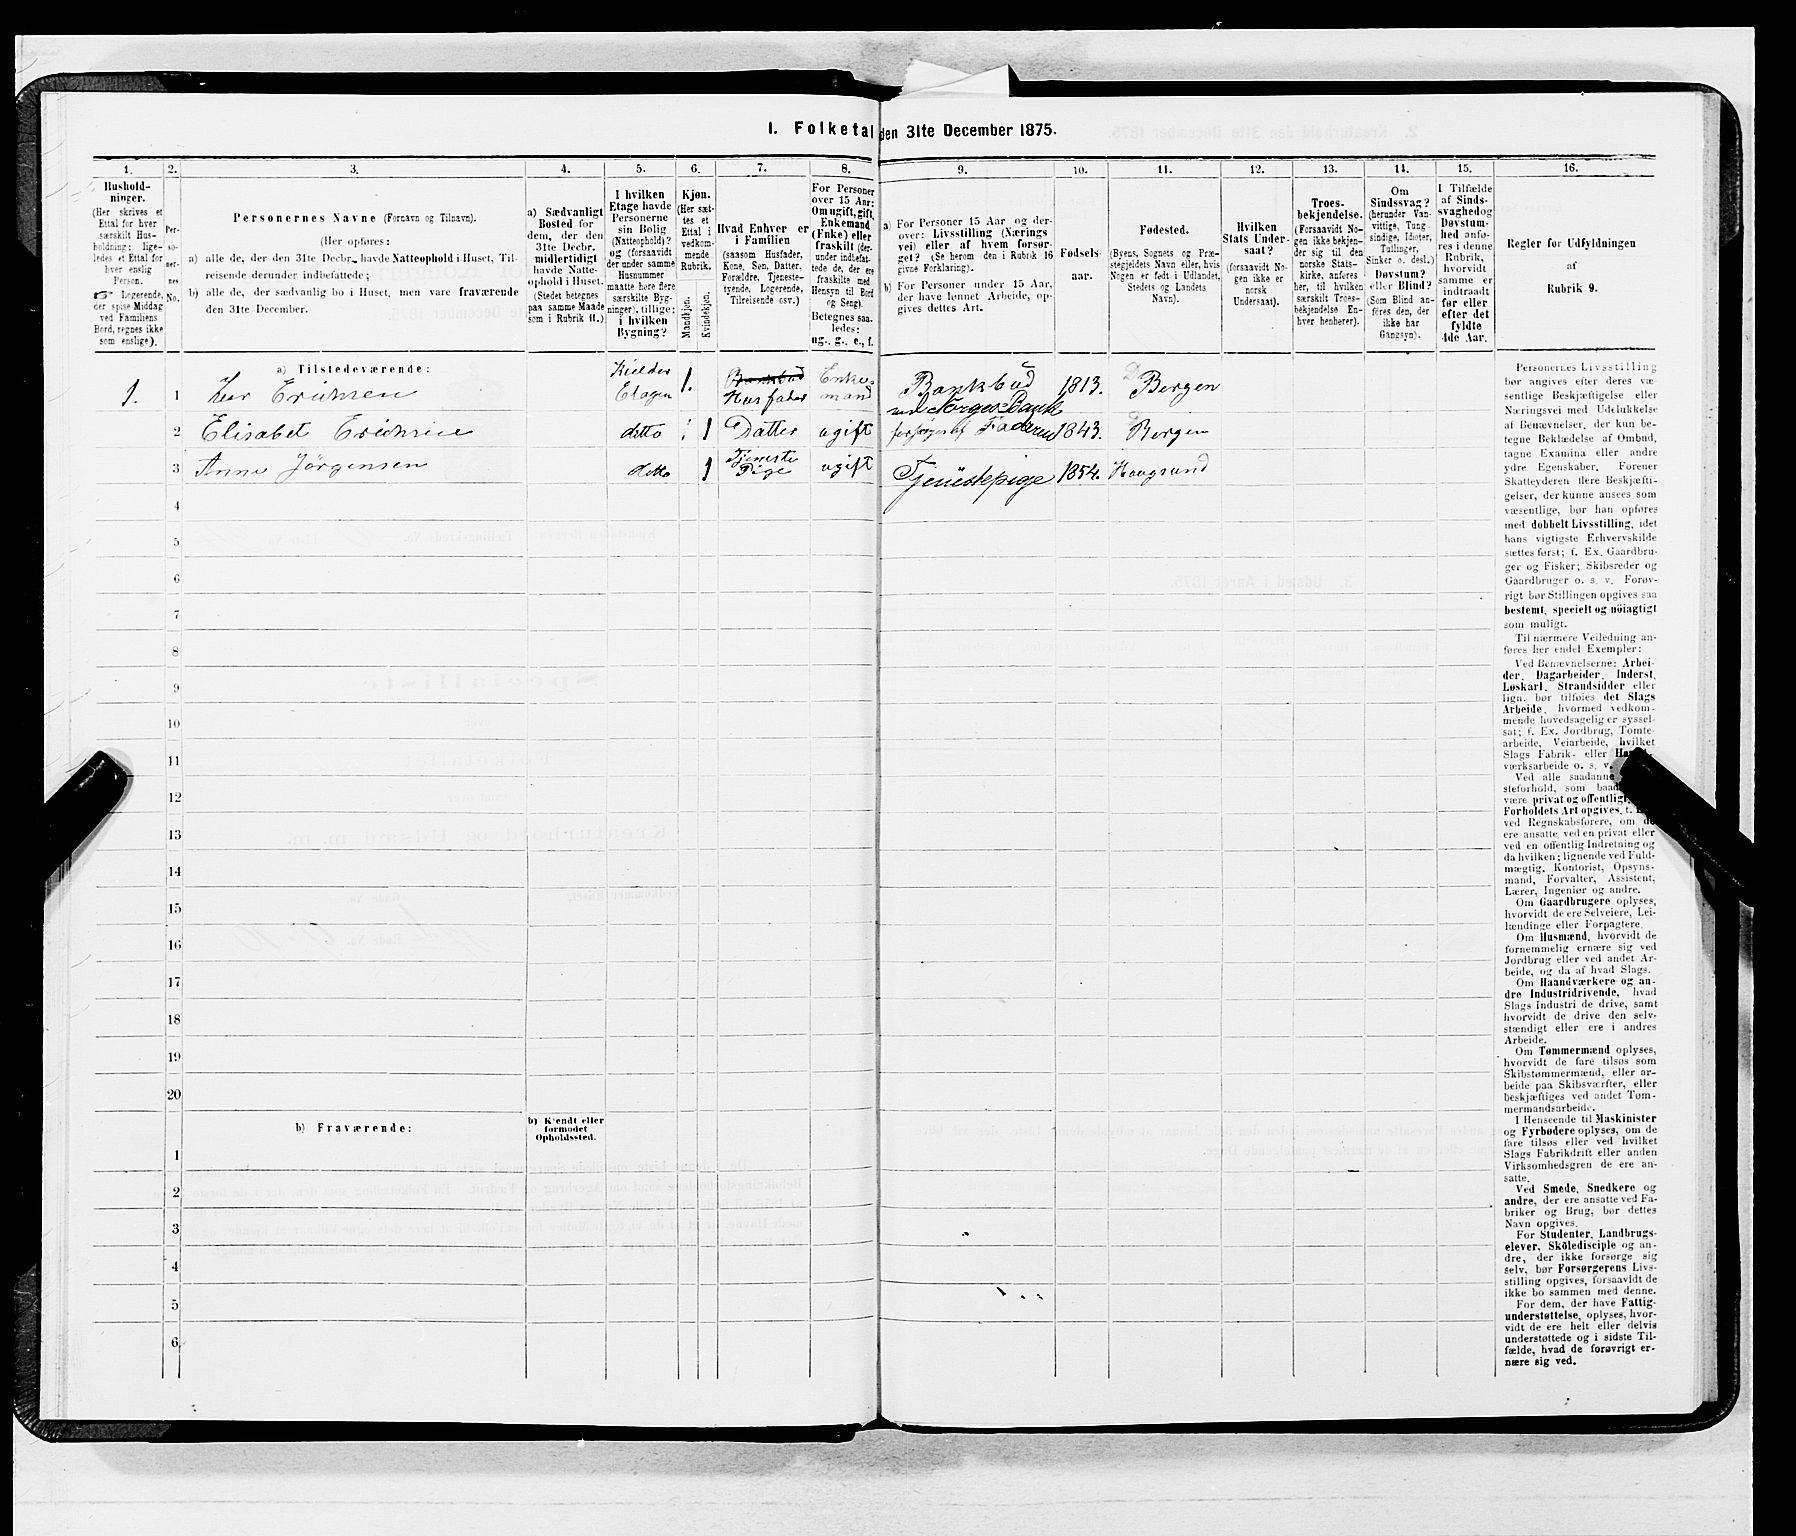 1. Folketal den 31te December 1875.
1. 2. 3. 4. 5. 6. 7. 8. 9. 10. 11. 12. 13. 14. 15. 16.
Hushold-
ninger.
(Her skrives et
Ettal for hver
særskilt Hus-
holdning; lige-
ledes et Ettal for
hver enslig
Person.
☞ Logerende,
der spise Middag
ved Familiens
Bord, regnes ikke
som enslige).
Per-
so-
ner-
nes
No.
Personernes Navne (Fornavn og Tilnavn).
(Her opføres:
a) alle de, der den 31te Decbr. havde Natteophold i Huset, Til-
reisende derunder indbefattede;
b) alle de, der sædvanlig bo i Huset, men vare fraværende
den 31te December.
a) Sædvanligt
Bosted for
dem, der den
31te Decbr.
midlertidigt
havde Natte-
ophold i Huset.
(Stedet betegnes
paa samme Maade
som i Rubrik 11.)
I hvilken
Etage havde
Personerne
sin Bolig
(Natteophold)?
og (forsaavidt
der under samme
Husnummer
maatte høre flere
særskilte Byg-
ninger), tillige:
i hvilken
Bygning?
Kjøn.
(Her sæt-
tes et
Ettal i
vedkom-
mende
Rubrik.
Mandkjøn.
Kvindekjøn.
Hvad Enhver er
i Familien
(saasom Husfader,
Kone, Søn, Datter,
Forældre, Tjeneste-
tyende, Logerende,
Tilreisende osv.)
For Personer
over 15 Aar:
Om ugift, gift,
Enkemand
(Enke) eller
fraskilt (der-
under indbefat-
tede de, der ere
fraskilte med
Hensyn til Bord
og Seng).
Betegnes saa-
ledes:
ug., g., e., f.
a) For Personer 15 Aar og der-
over: Livsstilling (Nærings
vei) eller af hvem forsør-
get? (Se herom den i Rubrik 16
givne Forklaring).
b) For Personer under 15 Aar,
der have lønnet Arbeide, op-
gives dettes Art.
Fødsels-
aar.
Fødested.
(Byens, Sognets og Præ-
stegjeldets Navn eller, hvis
Nogen er født i Udlandet,
Stedets og Landets
Navn).
Hvilken
Stats Under-
saat?
(forsaavidt No-
gen ikke er
norsk
Undersaat).
Troes-
bekjendelse.
(Forsaavidt No-
gen ikke bekjen-
der sig til den
norske Stats-
kirke, anføres
her, til hvilken
særskilt Troes-
bekjendelse En-
hver henhører).
Om
Sindssvag?
(herunder Van-
vittige, Tung-
sindige, Idioter,
Tullinger,
Sinker o. desl.)
Døvstum?
eller Blind?
(Som Blind an-
føres den, der
ikke har
Gangsyn).
I Tilfælde
af Sinds-
svaghed og
Døvstum-
hed anfø-
res i denne
Rubrik,
hvorvidt
samme er
indtraadt
før eller
efter det
fyldte
4de Aar.
Regler for Udfyldningen
af
Rubrik 9.
a) Tilstedeværende:
1. 1 Eriksen Kielder Etagen 1. Bankbud Husfader Enke-mand Bankbud ved Norges Bank 1813. Bergen
2 Elisabet Erichsen ditto 1 Datter ugift forsørges af Faderen 1843. Bergen
3 Anne Jørgensen ditto 1 Tjeneste Pige ugift Tjenestepige 1854. Haugsund
4
5
6
7
8
9
10
11
12
13
14
15
16
17
18
19
20
b) Fraværende:
b) Kjendt eller
formodet
Opholdssted.
1
2
3
4
5
6
Personernes Livsstilling
bør angives efter deres væ-
sentlige Beskjæftigelse eller
Næringsvei med Udelukkelse
af Benævnelser, der kun be-
tegne Beklædelse af Ombud,
tagne Examina eller andre
ydre Egenskaber. Forener
Skatteyderen flere Beskjæfti-
gelser, der kunne ansees som
væsentlige, bør han opføres
med dobbelt Livsstilling, idet
hans vigtigste Erhvervskilde
sættes først; f. Ex. Gaardbru-
ger og Fisker; Skibsreder og
Gaardbruger o. s. v. Forøv-
rigt bør Stillingen opgives saa
bestemt, specielt og nöiagtigt
som muligt.
Til nærmere Veiledning an-
føres her endel Exempler:
Ved Benævnelserne: Arbei-
der, Dagarbeider, Inderst,
Løskarl, Strandsidder eller
lign. bør tilføies det Slags
Arbeide, hvormed vedkom-
mende hovedsagelig er syssel-
sat; f. Ex. Jordbrug, Tomte-
arbeide, Veiarbeide, hvilket
Slags Fabrik- eller
værksarbeide o. s. v.
Ved alle saadanne
steforhold, som
være privat og offentlig,
Forholdets Art opgives,
ved Regnskabsførere, om de
ere ansatte ved en privat eller
ved en offentlig Indretning og
da hvilken; lignende ved Fuld-
mægtig, Kontorist, Opsyns-
mand, Forvalter, Assistent,
Lærer, Ingeniør og andre.
Om Gaardbrugere oplyses,
hvorvidt de ere Selveiere, Lei-
lændinge eller Forpagtere.
Om Husmænd, hvorvidt de
fornemmelig ernære sig ved
Jordbrug eller ved andet Ar-
beide, og da af hvad Slags.
Om Haandværkere og an-
dre Industridrivende, hvad
Slags Industri de drive, samt
hvorvidt de drive den selv-
stændigt eller ere i andres
Arbeide.
Om Tømmermænd oplyses,
hvorvidt de fare tilsøs som
Skibstømmermænd, eller ar-
beide paa Skibsværfter, eller
beskjæftiges ved andet Tøm-
mermandsarbeide.
I Henseende til Maskinister
og Fyrbødere oplyses, om de
fare tilsøs eller ved hvilket
Slags Fabrikdrift eller anden
Virksomhedsgren de ere an-
satte.
Ved Smede, Snedkere og
andre, der ere ansatte ved Fa-
briker og Brug, bør dettes
Navn opgives.
For Studenter, Landbrugs-
elever, Skoledisciple og an-
dre, der ikke forsørge sig
selv, bør Forsørgerens Livs-
stilling opgives, forsaavidt de
ikke bo sammen med denne.
For dem, der have Fattig-
understøttelse, oplyses, hvor-
vidt de ere helt eller delvis
understøttede og i sidste Til-
fælde, hvad de forøvrigt er-
nære sig ved.